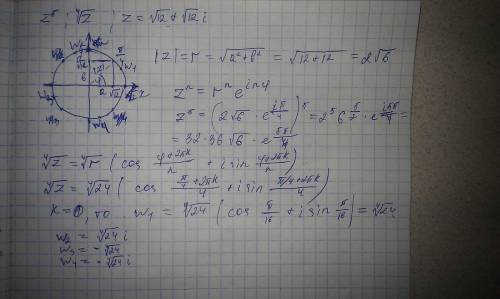 z⁵ ; ∜z ; z = √12 + √12 i
|z| = r = √(a²+b²) = √(12+12) = 2√6
zⁿ = rⁿ e^{inφ}
z⁵ = (2√6 · e^{iπ/4})⁵ = 2⁵ 6^{5/2} · e^{i5π/4} =
= 32·36√6 · e^{5πi/4}
ⁿ√z = ⁿ√r ( cos (φ+2πk)/n + i sin (φ+2πk)/n )
∜z = ∜24 ( cos (π/4+2πk)/4 + i sin (π/4+2πk)/4 )
K=0, то w₁ = ∜24 ( cos π/16 + i sin π/16 ) = ∜24
w₂ = ∜24 i
w₃ = - ∜24
w₄ = - ∜24 i